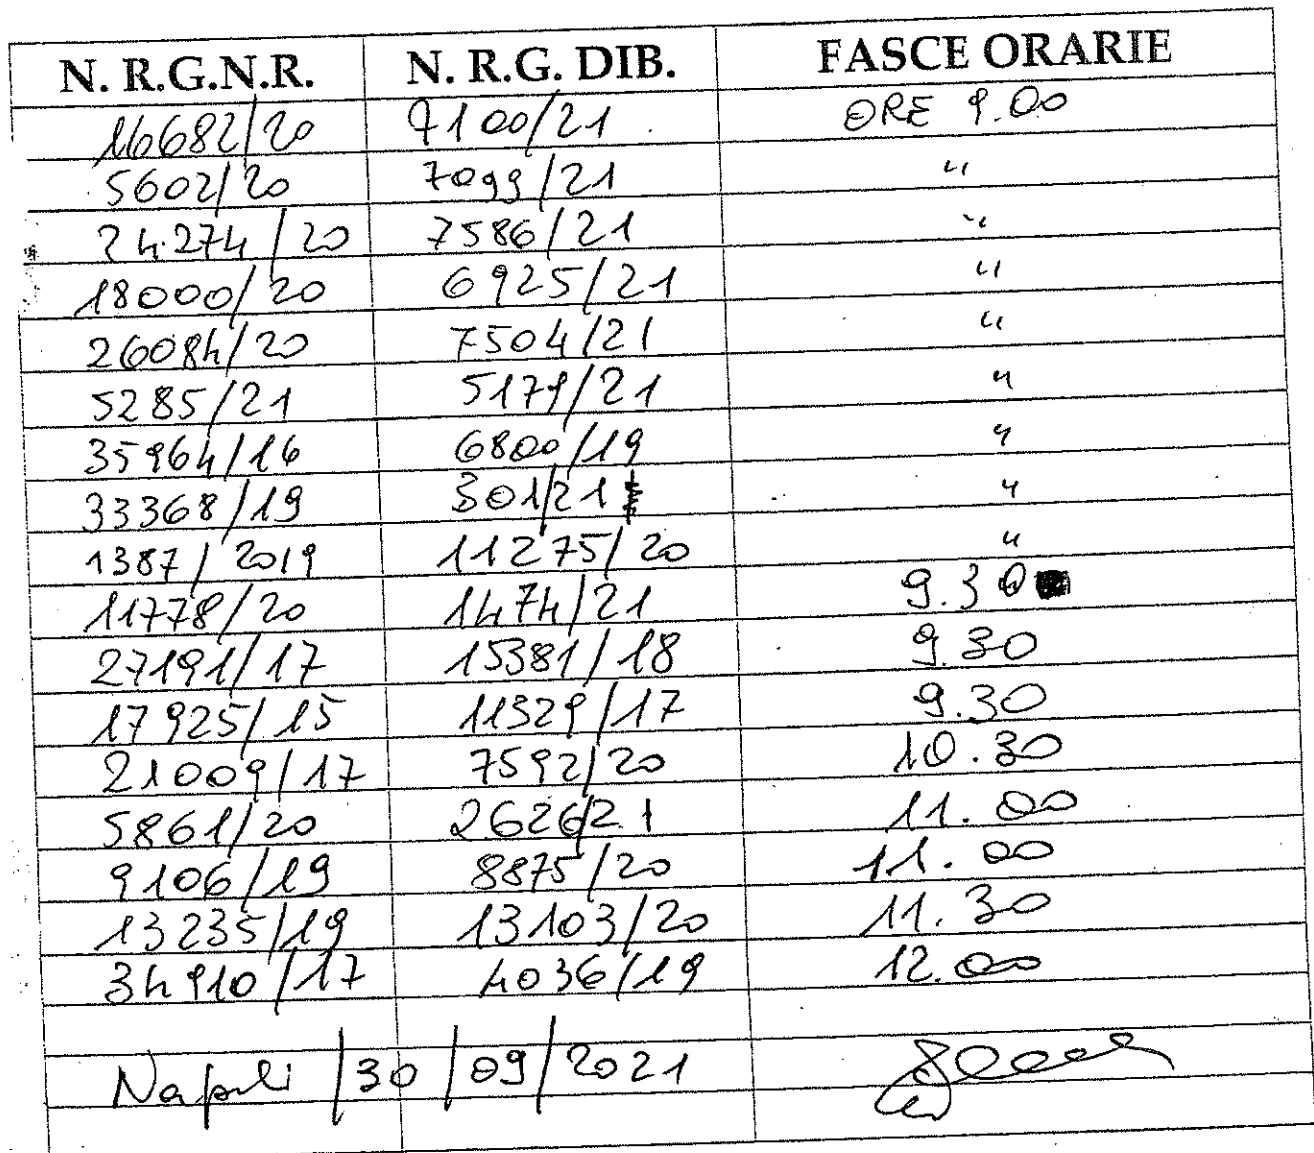 N. R.G.N.R. N. R.G. DIB. FASCE ORARIE
16682/20 7100/21 ORE 9.00
5602/20 7099/21 "
24.274/20 7586/21 "
18000/20 6925/21 "
26084/20 7504/21 "
5285/21 5179/21 "
35964/16 6800/19 "
33368/19 301/21 "
1387/2019 11275/20 "
11778/20 1474/21 9.30
27191/17 15381/18 9.30
17925/15 11329/17 9.30
21009/17 7592/20 10.30
5861/20 2626/21 11.00
9106/19 8875/20 11.00
13235/19 13103/20 11.30
34910/17 4036/19 12.00
Napoli /30/09/2021